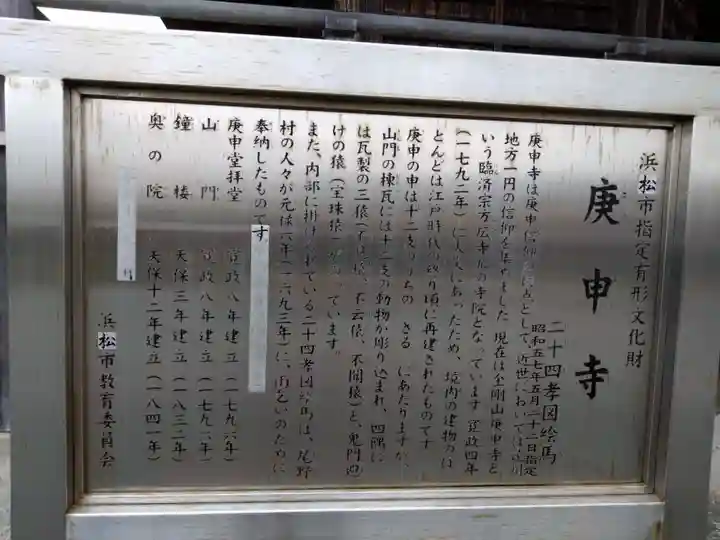 浜松市指定有形文化財
庚申寺
二十四孝図絵馬
昭和五七年五月二十二日指定
庚申寺は庚申信仰の として、近世においては
地方一円の信仰を集めました。現在は金剛山庚申寺と
いう臨済宗方広寺 の寺院となっています。寛政四年
(一七九二年)に火災にあったため、境内の建物のほ
とんどは江戸時代の終り頃に再建されたものです。
庚申の申は十二支のうちの さる にあたりますが、
山門の棟瓦には十二支の動物が彫り込まれ、四隅に
は瓦製の三猿( 猿、不云猿、不聞猿)と、鬼門除
けの猿( 珠猿)が っています。
また、内部に掛けられている二十四孝図絵馬は、尾野
村の人々が元禄六年(一六九三年)に、雨乞いのために
奉納したものです。
庚申堂拝堂 寛政八年建立(一七九六年)
山門 寛政八年建立(一七九六年)
鐘楼 天保三年建立(一八三二年)
奥の院 天保十二年建立(一八四一年)
浜松市教育委員会